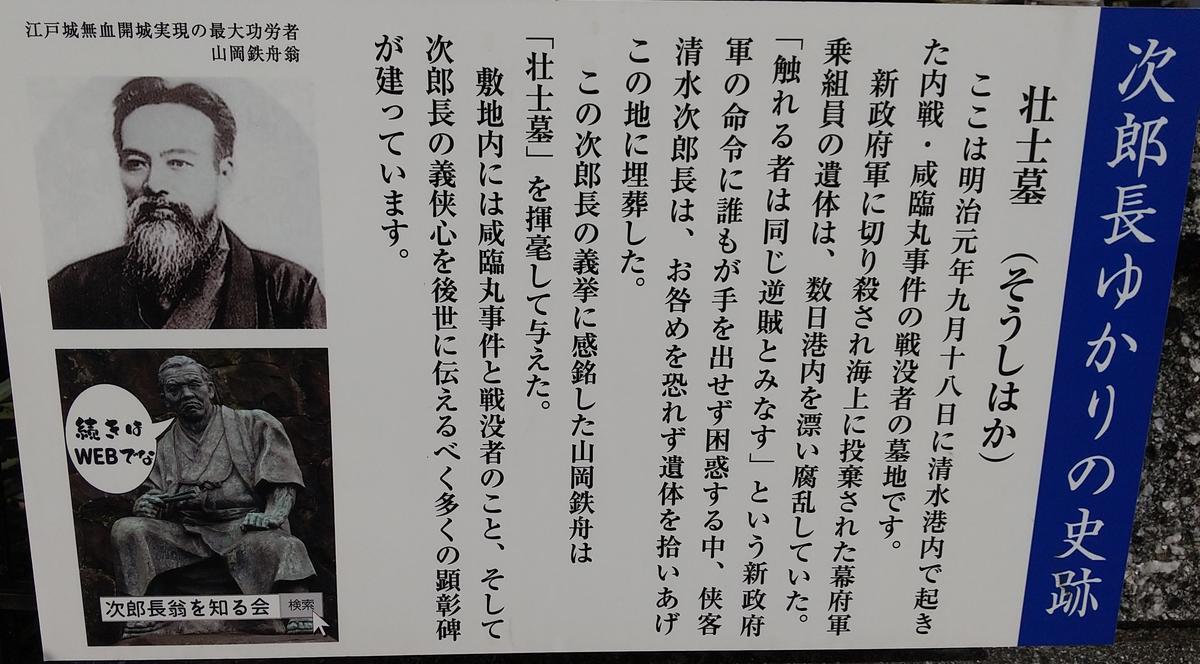 次郎長ゆかりの史跡
壮士墓　（そうしはか）
ここは明治元年九月十八日に清水港内で起き
た内戦・咸臨丸事件の戦没者の墓地です。
新政府軍に切り殺され海上に投棄された幕府軍
乗組員の遺体は、数日港内を漂い腐乱していた。
「触れる者は同じ逆賊とみなす」という新政府
軍の命令に誰もが手を出せず困惑する中、侠客
清水次郎長は、お咎めを恐れず遺体を拾いあげ
この地に埋葬した。
この次郎長の義挙に感銘した山岡鉄舟は
「壮士墓」を揮毫して与えた。
敷地内には咸臨丸事件と戦没者のこと、そして
次郎長の義侠心を後世に伝えるべく多くの顕彰碑
が建っています。
江戸城無血開城実現の最大功労者
山岡鉄舟翁
続きは
WEBでな
次郎長翁を知る会
検索